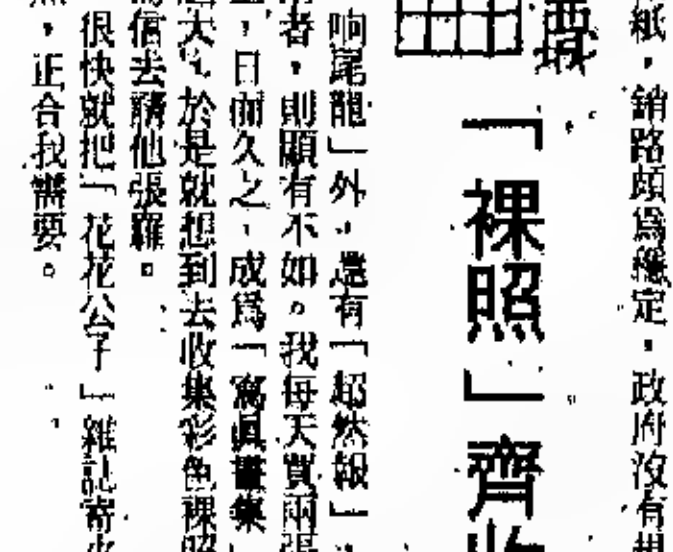 紙，銷路頗爲穩定，政府沒有
「裸照」齊收
响尾龍」外，還有「超然報」，
者，則顯有不如。我每天買兩張
，日而久之，成爲「寫眞畫集」
大，於是就想到去收集彩色裸照
信去請他張羅。
很快就把「花花公子」雜誌寄
，正合我需要。